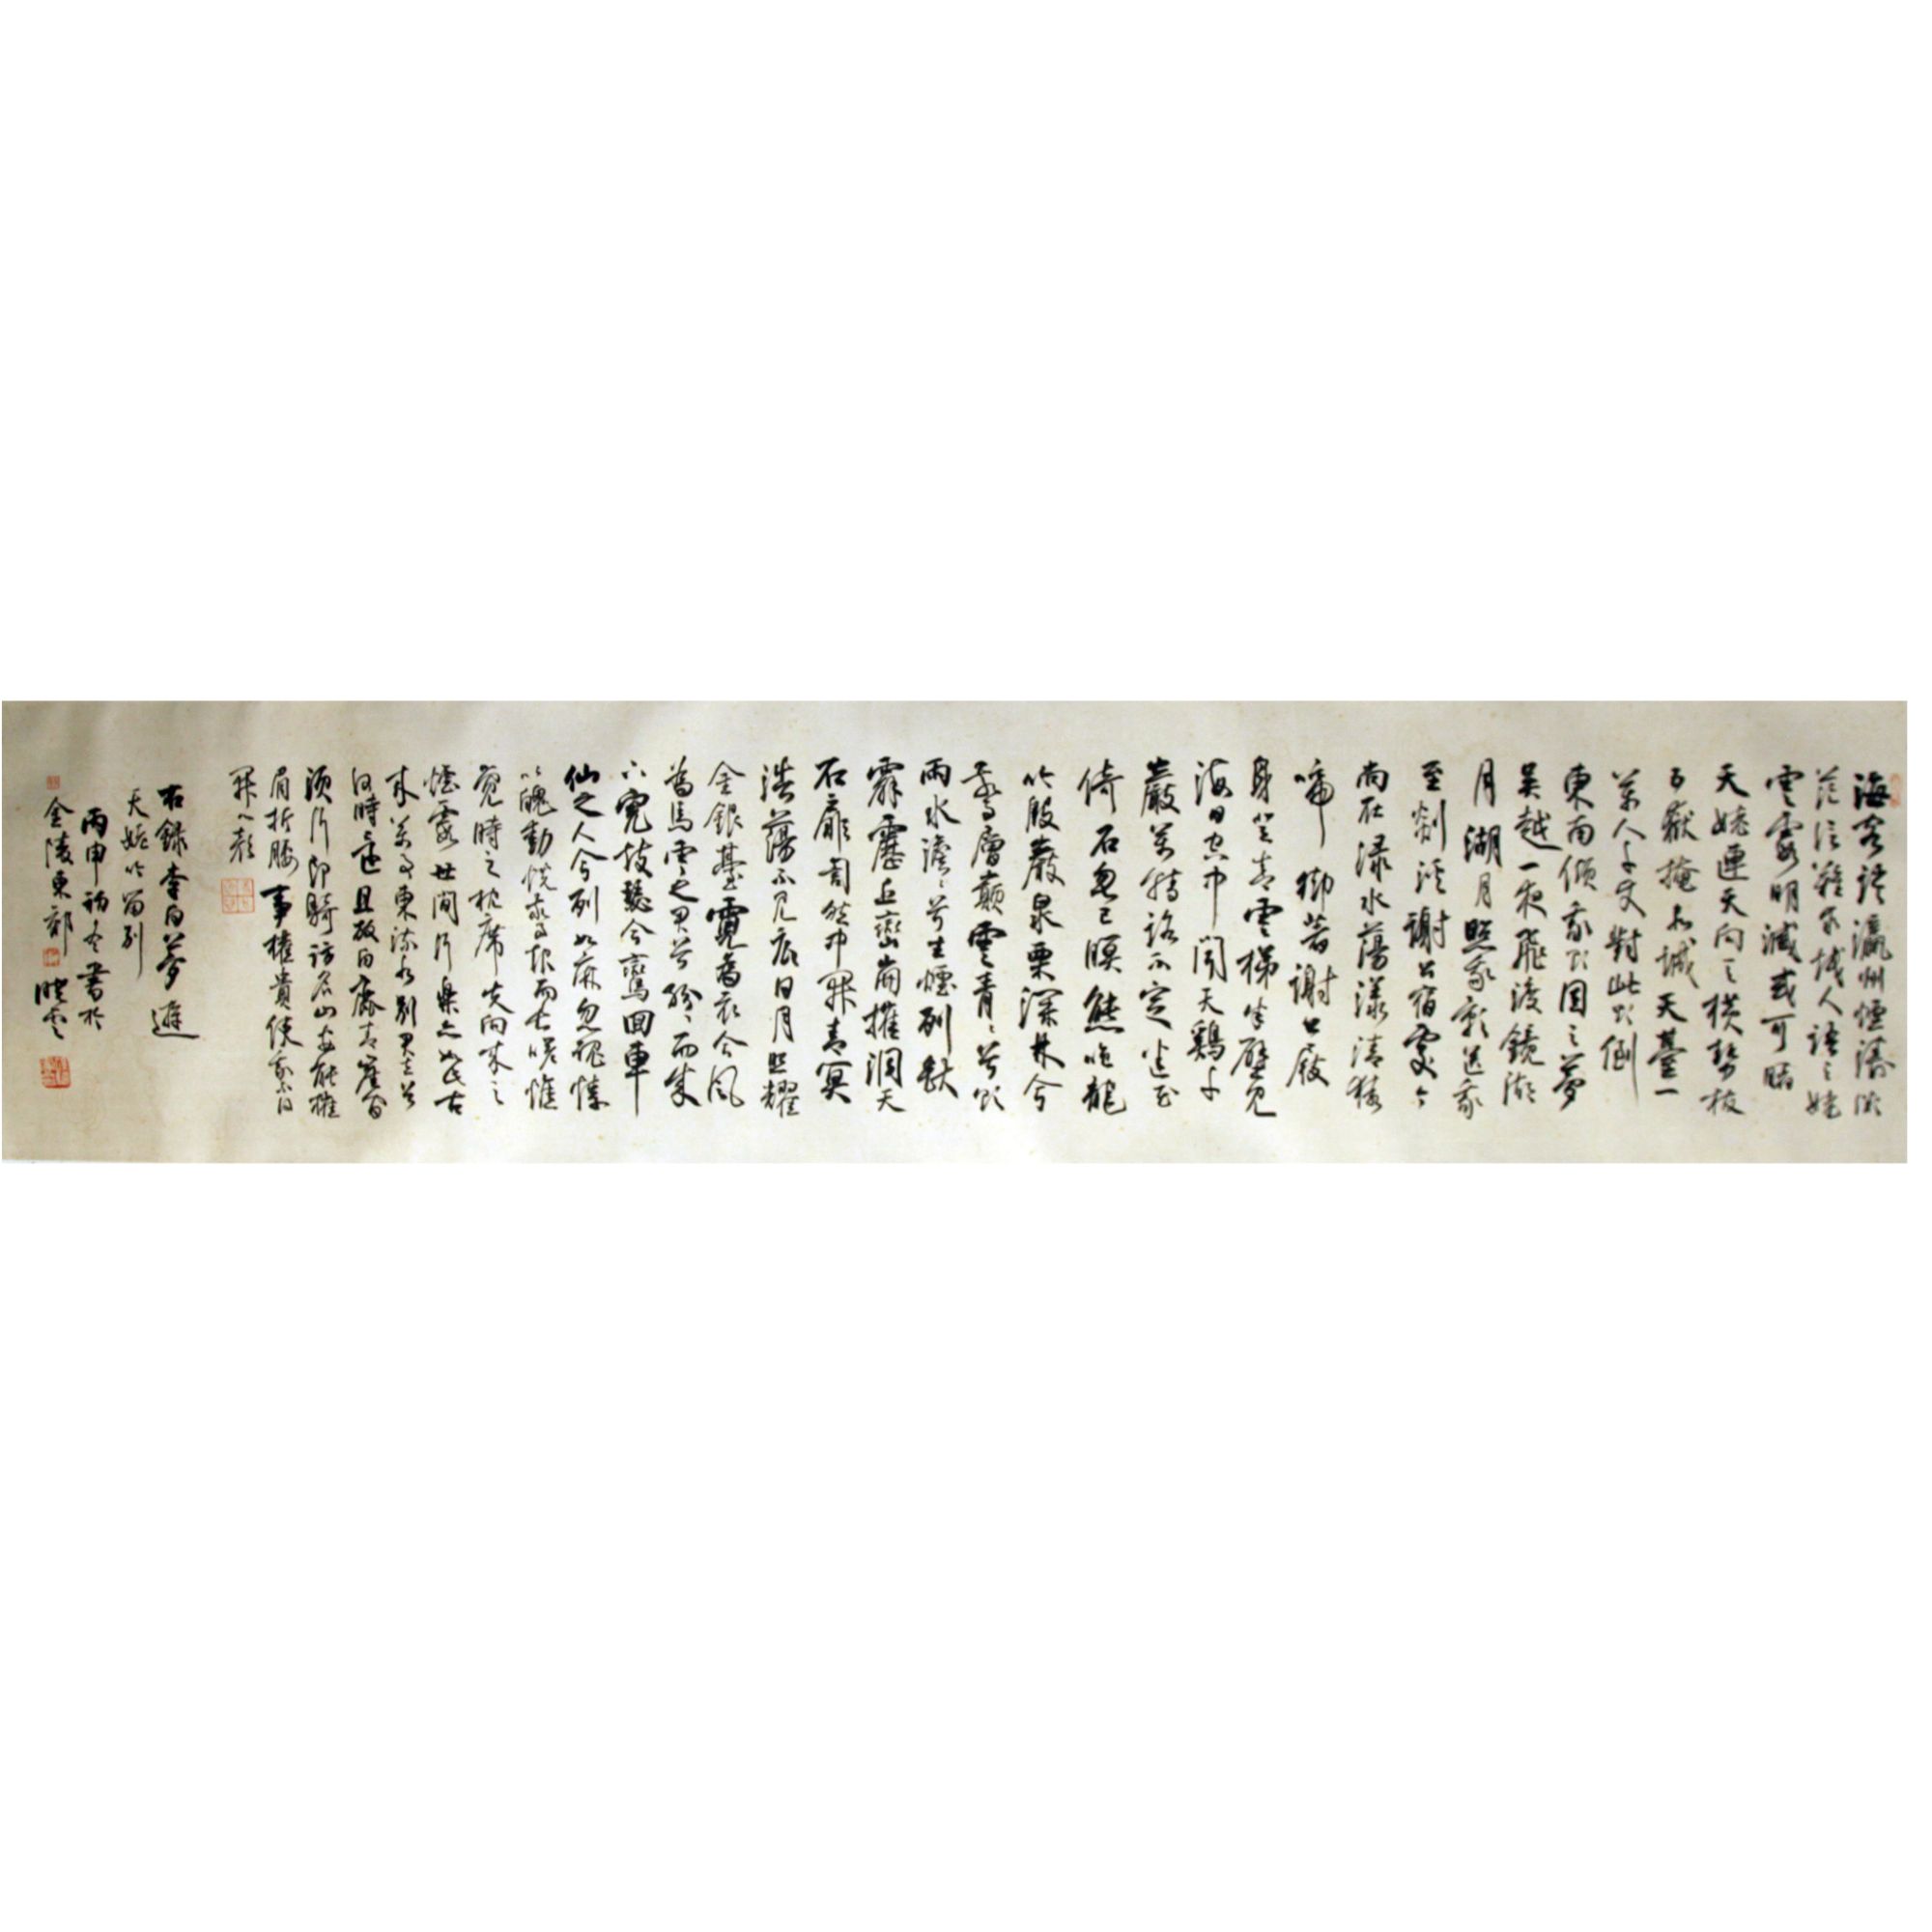 海客談瀛洲煙濤微
茫信難求越人語天姥
雲霞明滅或可睹
天姥連天向天橫勢拔
五嶽掩赤城天臺一
萬八千丈對此欲倒
東南傾我欲因之夢
吳越一夜飛渡鏡湖
月湖月照我影送我
至剡溪謝公宿處今
尚在淥水蕩漾清猿
啼腳著謝公屐
身登青雲梯半壁見
海日空中聞天雞千
巖萬轉路不定迷花
倚石忽已暝熊咆龍
吟殷巖泉栗深林兮
驚層巔雲青青兮欲
雨水澹澹兮生煙列缺
霹靂丘巒崩摧洞天
石扉訇然中開青冥
浩蕩不見底日月照耀
金銀臺霓為衣兮風
為馬雲之君兮紛紛而來
下虎鼓瑟兮鸞回車
仙之人兮列如麻忽魂悸
以魄動怳驚起而長嗟惟
覺時之枕席失向來之
煙霞世間行樂亦如此古
來萬事東流水別君去兮
何時還且放白鹿青崖間
須行即騎訪名山安能摧
眉折腰事權貴使我不得
開心顏
右錄李白夢遊
天姥吟留別
丙申初冬書於
金陵東郊 曉雲